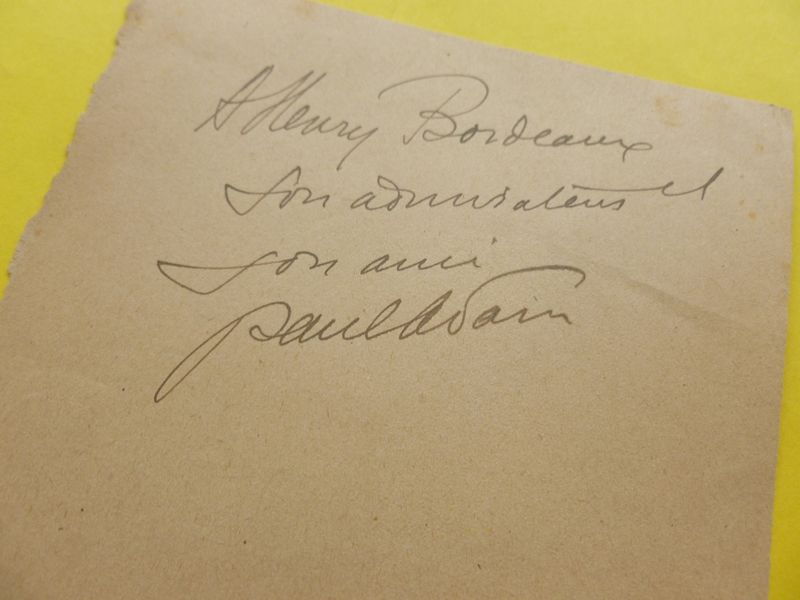 A Henry Bordeaux
son admirateur et
son ami
Paul Adam